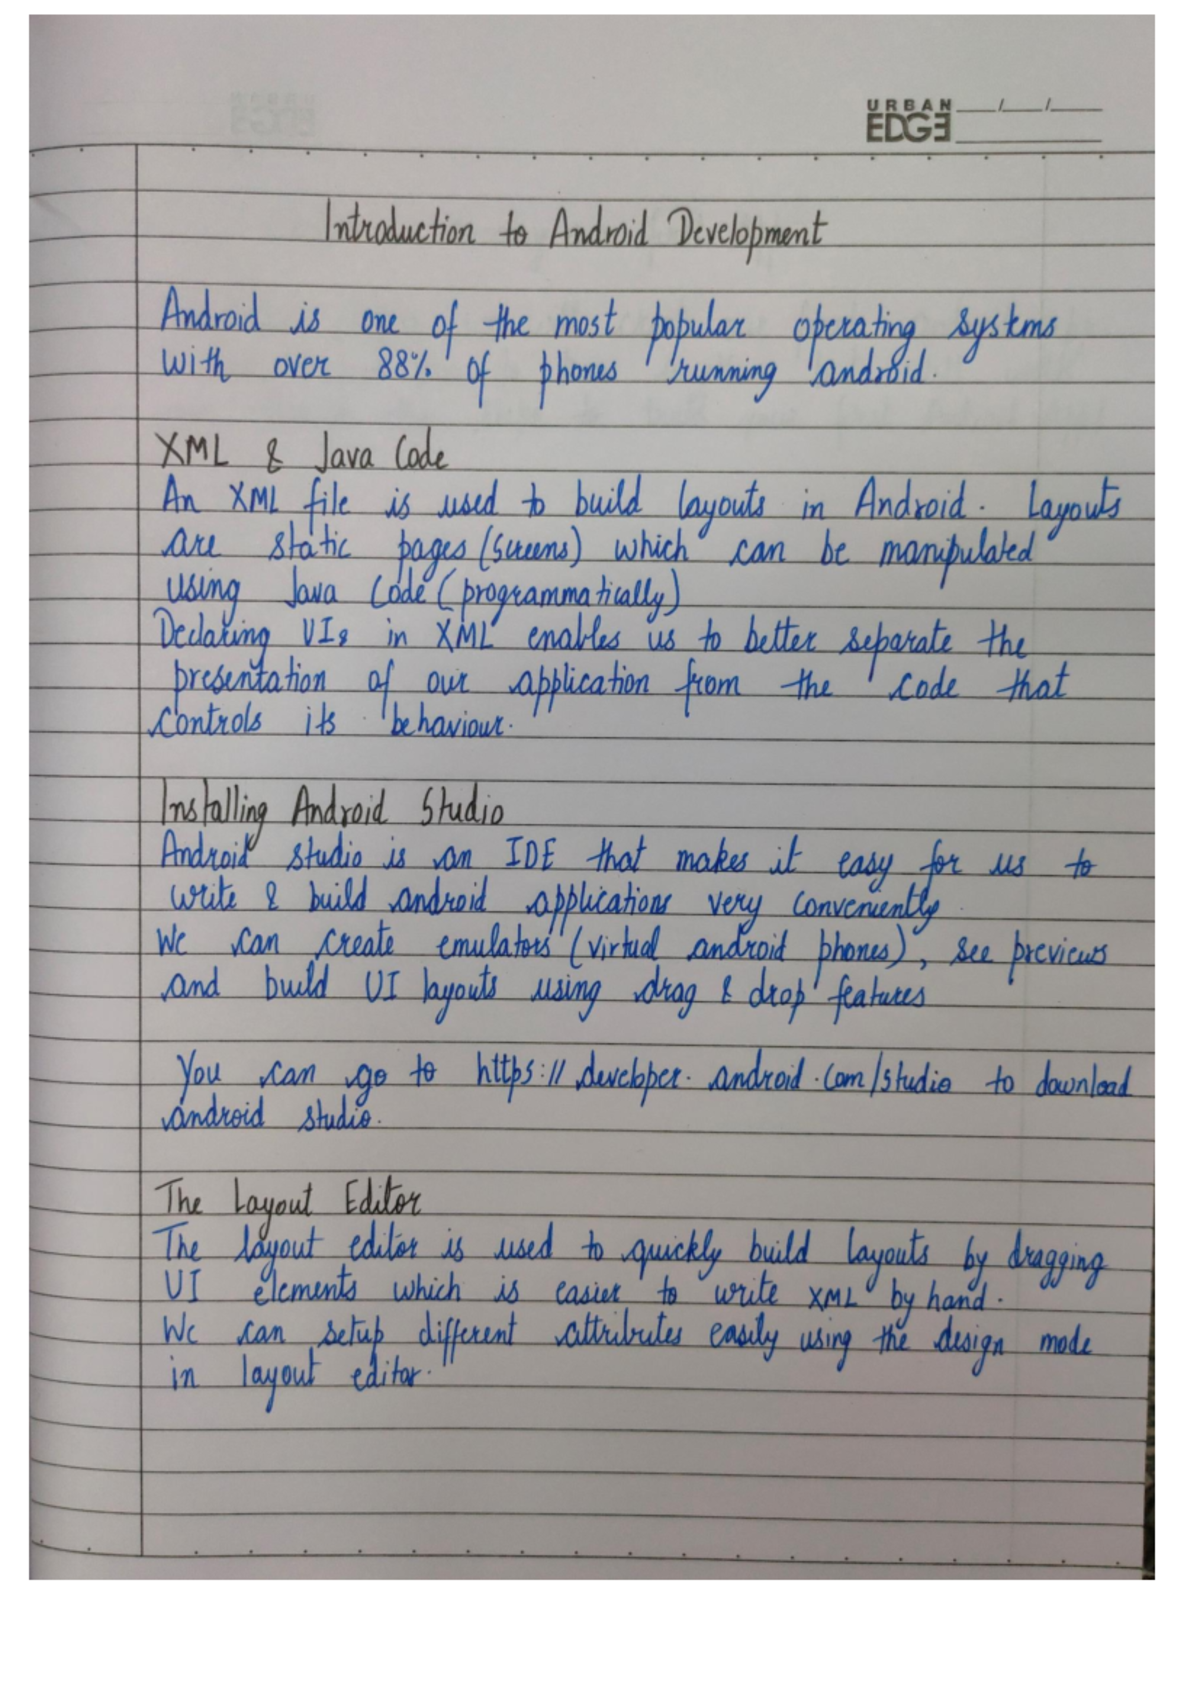 URBAN
EDGE
Introduction to Android Development
Android is one of the most popular operating systems
with over 88% of phones running android.
XML & Java Code
An XML file is used to build layouts in Android. Layouts
are static pages (screens) which can be manipulated
using Java Code (programmatically)
Declaring UIs in XML enables us to better separate the
presentation of our application from the code that
controls its behaviour.
Installing Android Studio
Android studio is an IDE that makes it easy for us to
write & build android applications very conveniently.
We can create emulators (virtual android phones), see previews
and build UI layouts using drag & drop features
You can go to https://developer.android.com/studio to download
android studio.
The Layout Editor
The layout editor is used to quickly build layouts by dragging
UI elements which is easier to write XML by hand.
We can setup different attributes easily using the design mode
in layout editor.